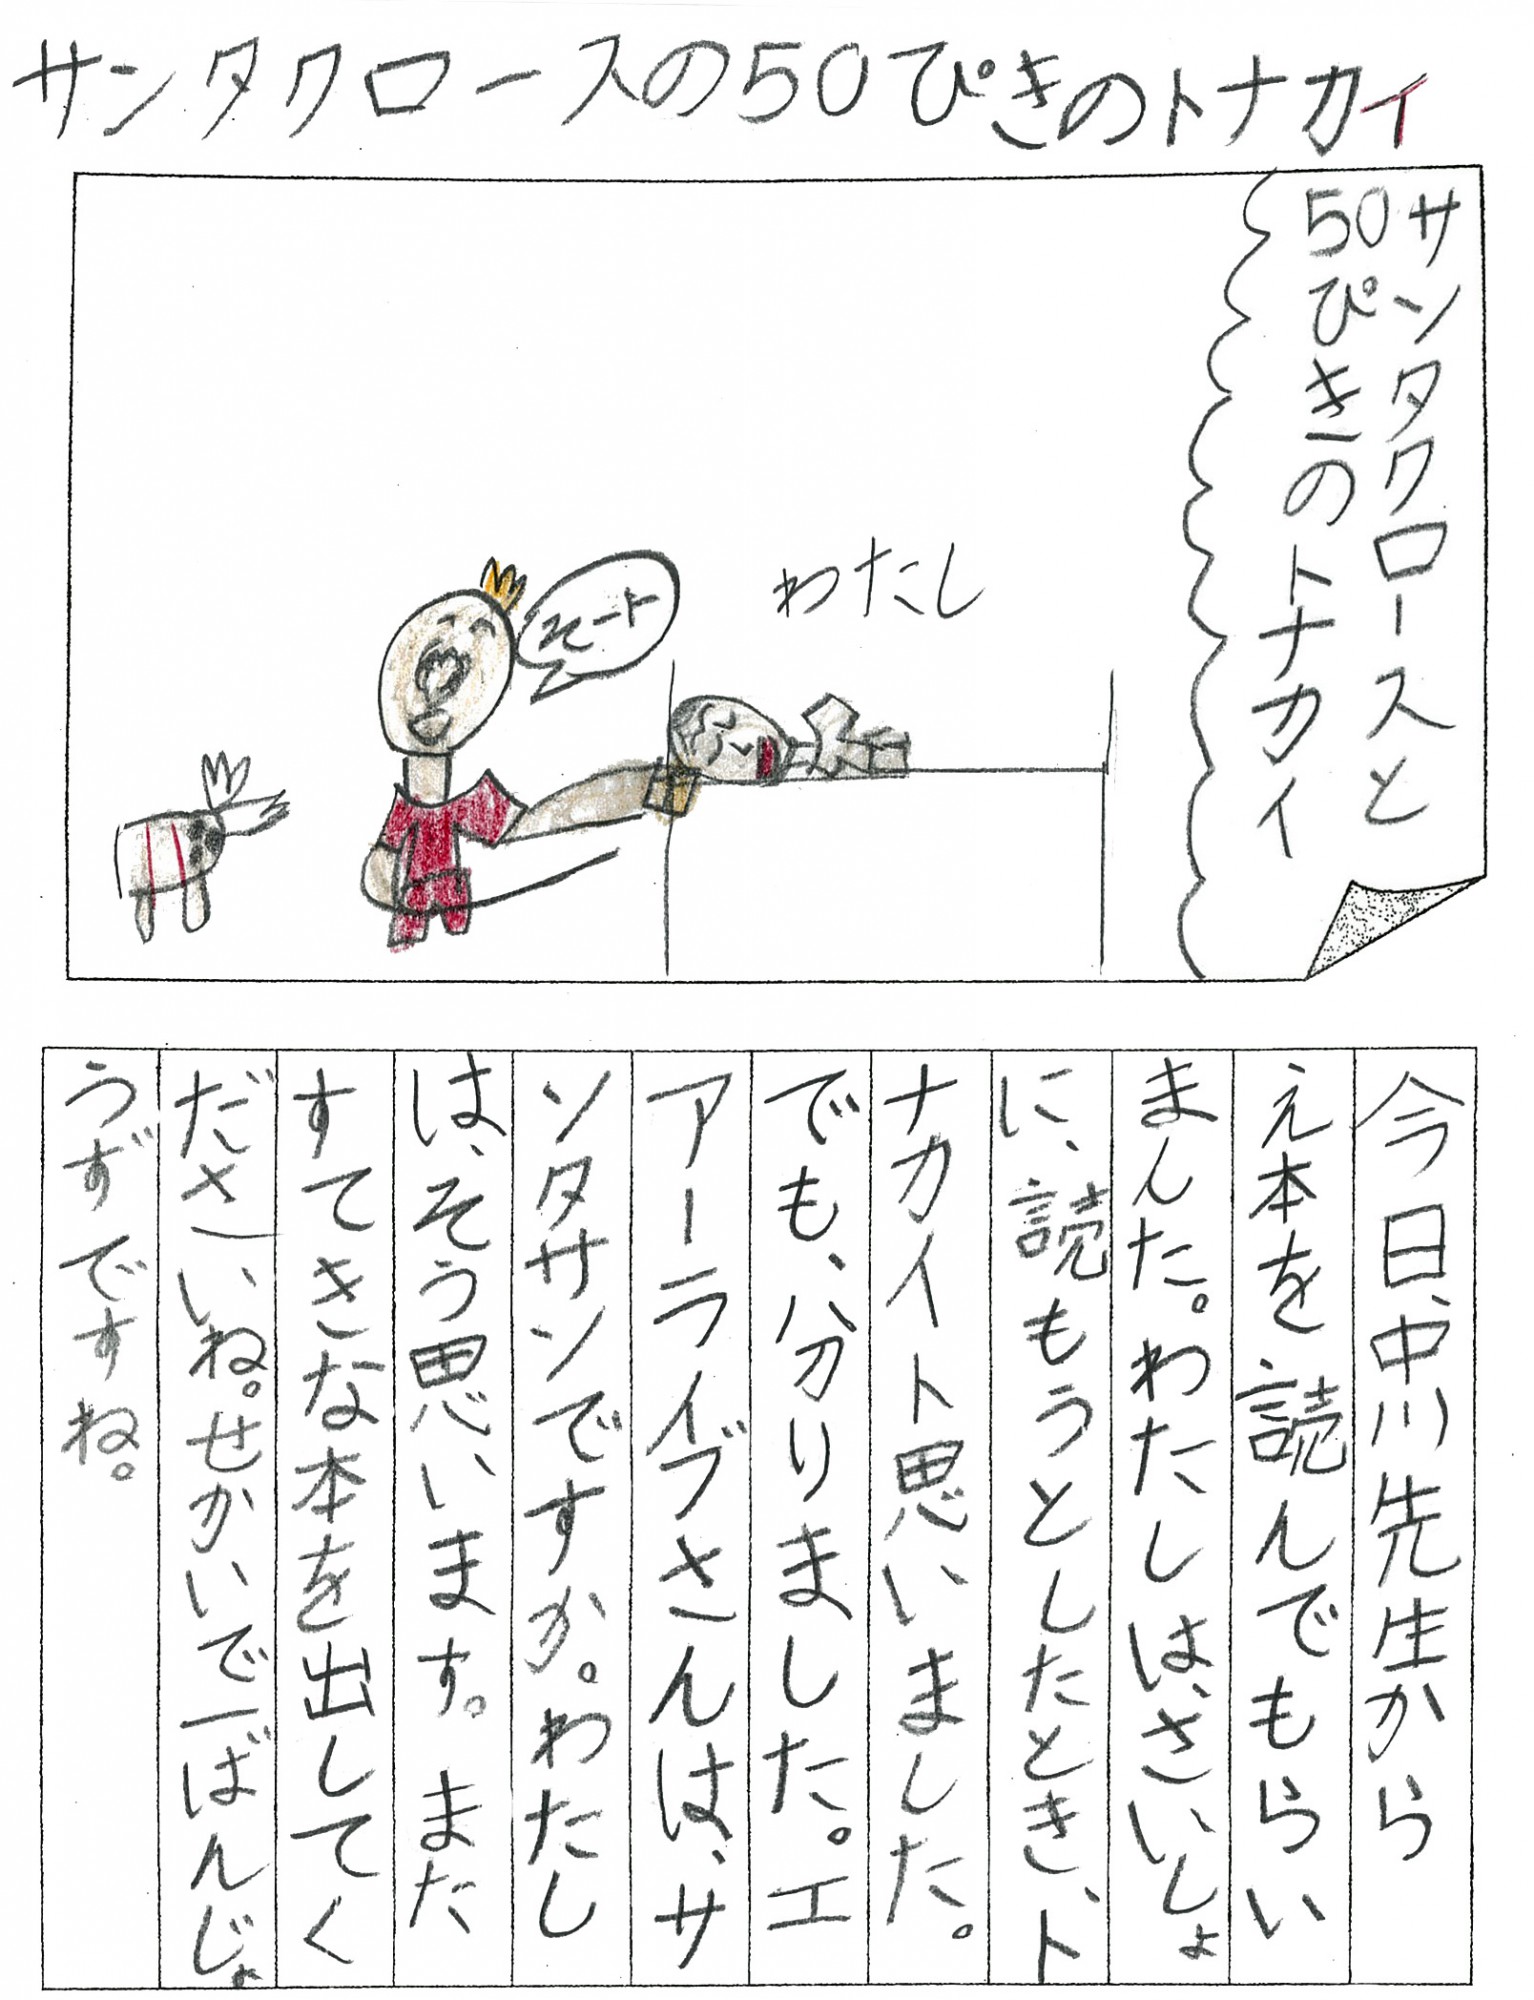 サンタクロースの50ぴきのトナカイ
サンタクロースと
50ぴきのトナカイ
そート
わたし
今日、中川先生から
え本を読んでもらい
まんた。わたしは、さいしょ
に、読もうとしたとき、ト
ナカイト思いました。
でも、分りました。エ
アーライブさんは、サ
ンタサンですか。わたし
は、そう思います。また
すてきな本を出してく
ださいね。せかいで一ばんじょ
うずですね。